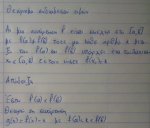 Θεώρημα ενδιαμέσων τιμών
Αν μια συνάρτηση f είναι συνεχής στο [α,β]
με f(α) ≠ f(β) τότε για κάθε αριθμό η μεταξύ
των f(α) και f(β) υπάρχει ένα τουλάχιστον
x₀ ∈ (α,β) τέτοιο ώστε f(x₀) = η
Απόδειξη
Έστω f(α) < f(β)
Θεωρώ τη συνάρτηση
g(x) = f(x) - η με f(α) < η < f(β)